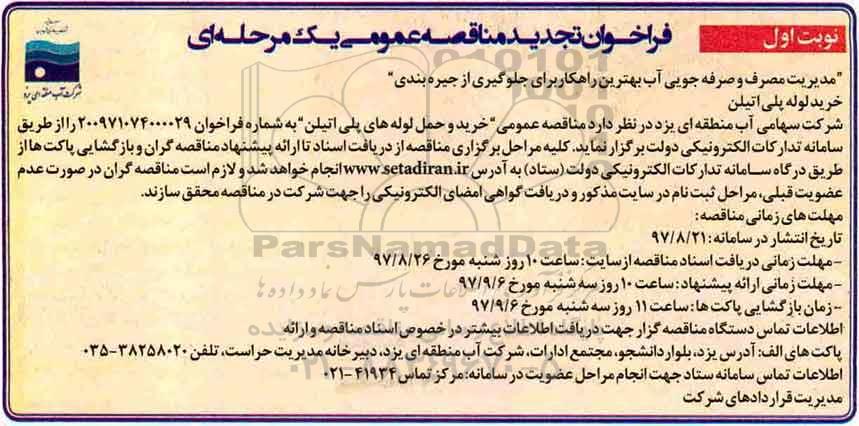 نوبت اول
فراخوان تجدید مناقصه عمومی یک مرحله‌ای
شرکت آب منطقه ای یزد
"مدیریت مصرف و صرفه جویی آب بهترین راهکار برای جلوگیری از جیره بندی"
خرید لوله پلی اتیلن
شرکت سهامی آب منطقه ای یزد در نظر دارد مناقصه عمومی "خرید و حمل لوله های پلی اتیلن" به شماره فراخوان ۲۰۰۹۷۱۰۷۴۰۰۰۰۲۹ را از طریق
سامانه تدارکات الکترونیکی دولت برگزار نماید. کلیه مراحل برگزاری مناقصه از دریافت اسناد تا ارائه پیشنهاد مناقصه گران و بازگشایی پاکت ها از
طریق درگاه سامانه تدارکات الکترونیکی دولت (ستاد) به آدرس www.setadiran.ir انجام خواهد شد و لازم است مناقصه گران در صورت عدم
عضویت قبلی، مراحل ثبت نام در سایت مذکور و دریافت گواهی امضای الکترونیکی را جهت شرکت در مناقصه محقق سازند.
مهلت های زمانی مناقصه:
تاریخ انتشار در سامانه: ۹۷/۸/۲۱
-مهلت زمانی دریافت اسناد مناقصه از سایت: ساعت ۱۰ روز شنبه مورخ ۹۷/۸/۲۶
-مهلت زمانی ارائه پیشنهاد: ساعت ۱۰ روز سه شنبه مورخ ۹۷/۹/۶
-زمان بازگشایی پاکت ها: ساعت ۱۱ روز سه شنبه مورخ ۹۷/۹/۶
اطلاعات تماس دستگاه مناقصه گزار جهت دریافت اطلاعات بیشتر در خصوص اسناد مناقصه و ارائه
پاکت های الف: آدرس یزد، بلوار دانشجو، مجتمع ادارات، شرکت آب منطقه ای یزد، دبیرخانه مدیریت حراست، تلفن ۳۸۲۵۸۰۲۰-۰۳۵
اطلاعات تماس سامانه ستاد جهت انجام مراحل عضویت در سامانه: مرکز تماس ۴۱۹۳۴-۰۲۱
مدیریت قراردادهای شرکت
ParsNamadData